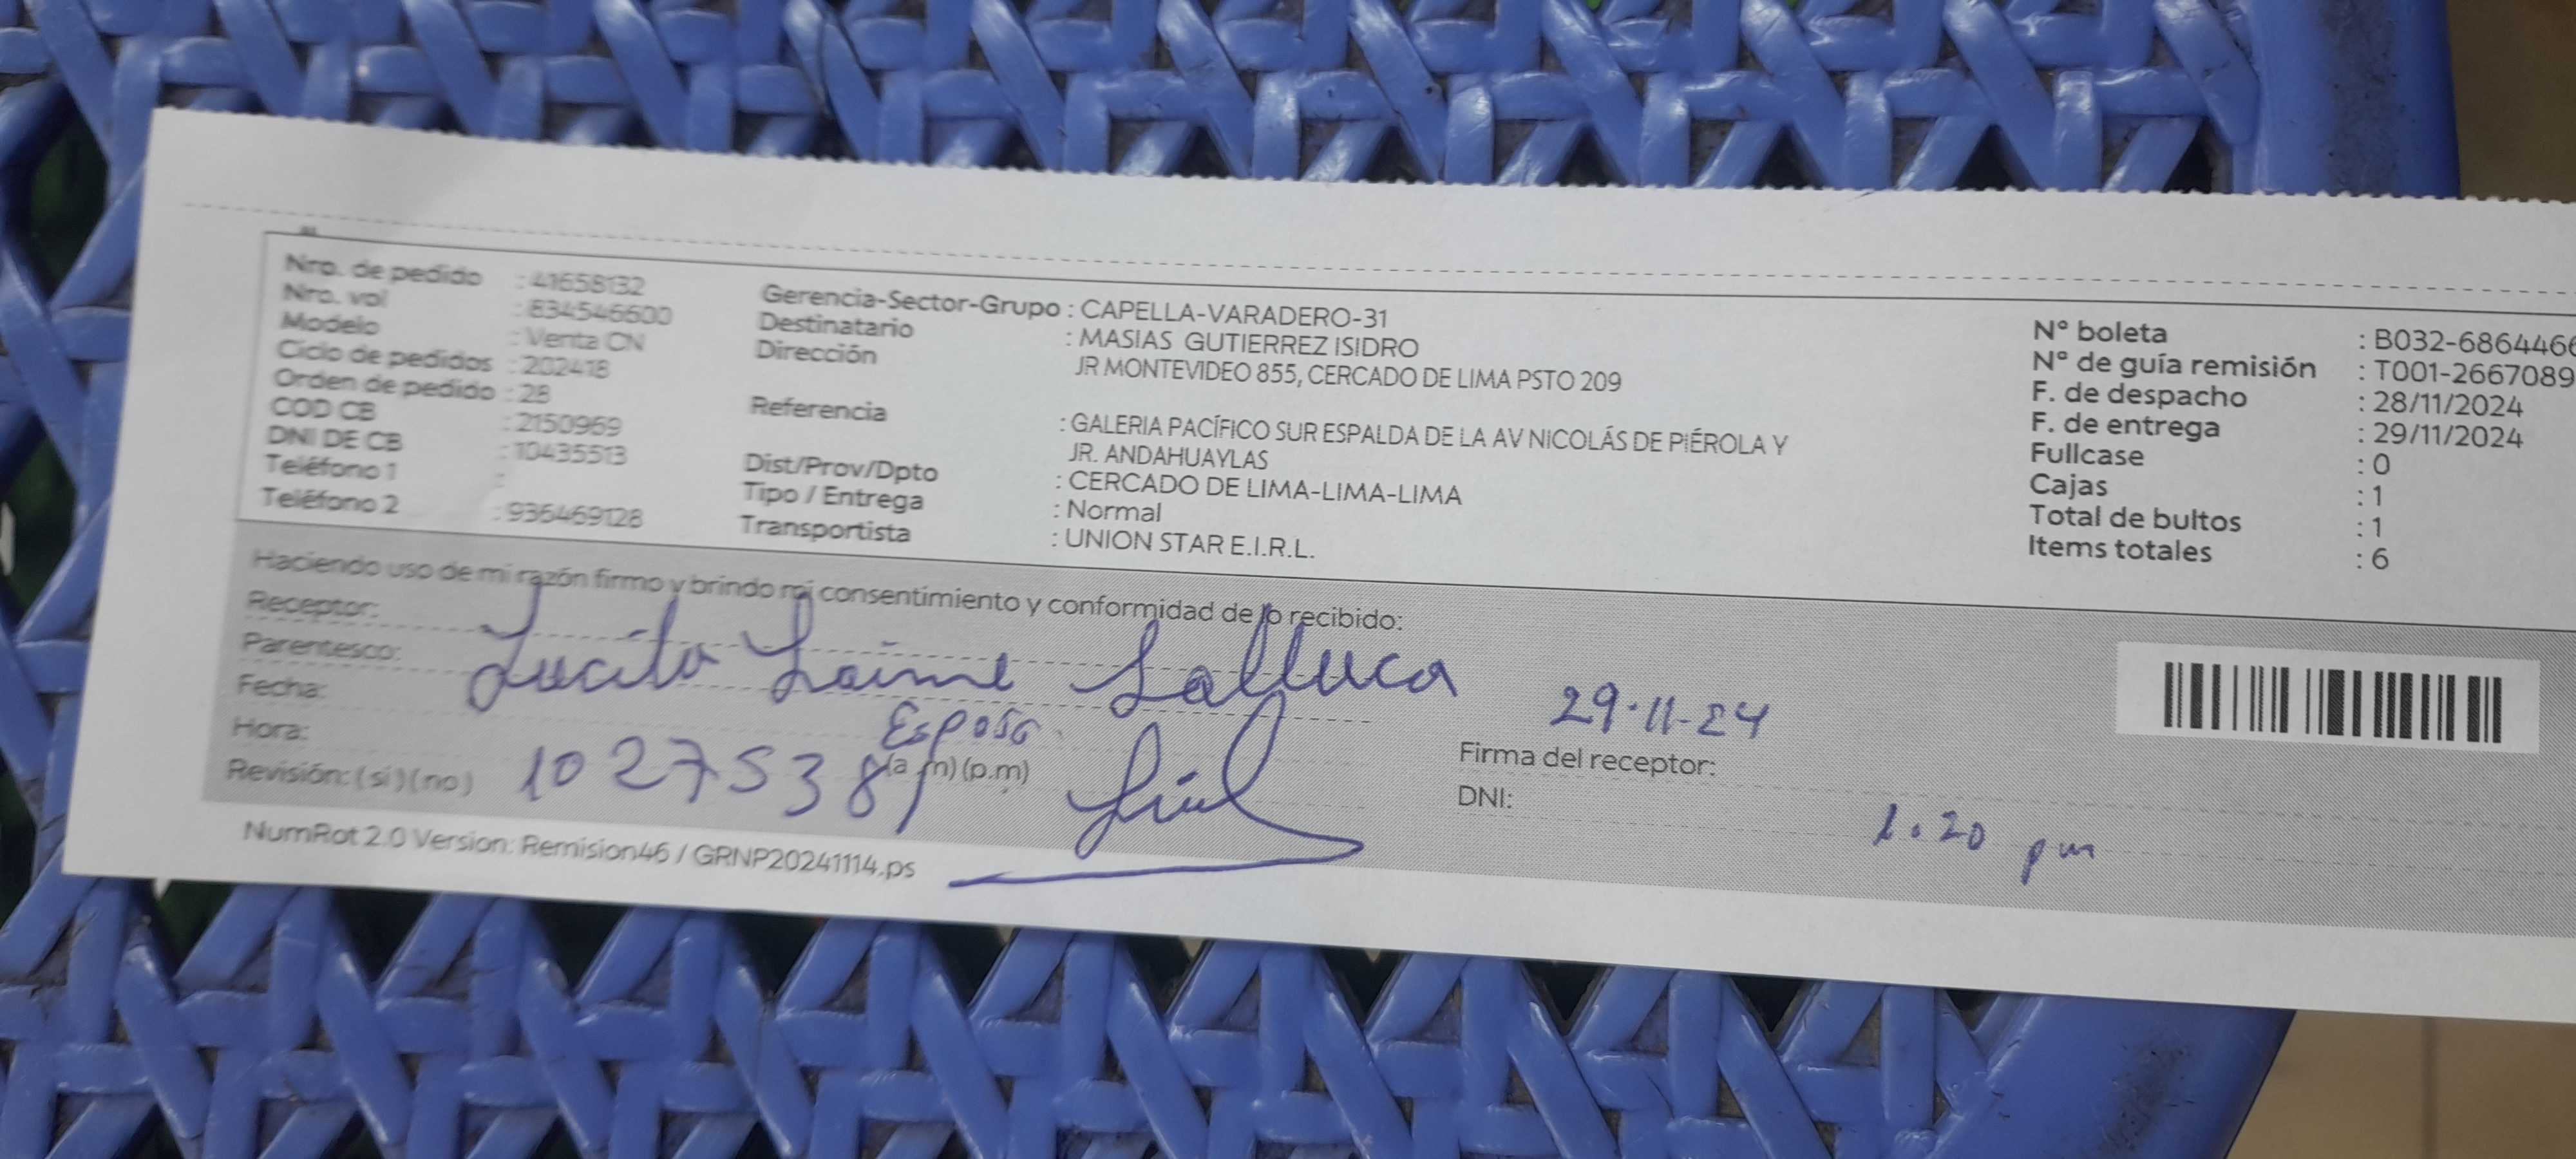 Nro. de pedido : 41658132
Nro. vol : 834546600
Modelo : Venta CN
Ciclo de pedidos : 202418
Orden de pedido : 28
COD CB : 2150969
DNI DE CB : 10435513
Teléfono 1 :
Teléfono 2 : 936469128
Gerencia-Sector-Grupo : CAPELLA-VARADERO-31
Destinatario : MASIAS GUTIERREZ ISIDRO
Dirección JR MONTEVIDEO 855, CERCADO DE LIMA PSTO 209
Referencia : GALERIA PACÍFICO SUR ESPALDA DE LA AV NICOLÁS DE PIÉROLA Y
JR. ANDAHUAYLAS
Dist/Prov/Dpto : CERCADO DE LIMA-LIMA-LIMA
Tipo / Entrega : Normal
Transportista : UNION STAR E.I.R.L.
N° boleta : B032-6864466
N° de guía remisión : T001-2667089
F. de despacho : 28/11/2024
F. de entrega : 29/11/2024
Fullcase : 0
Cajas : 1
Total de bultos : 1
Items totales : 6
Haciendo uso de mi razón firmo y brindo mi consentimiento y conformidad de lo recibido:
Receptor:
Parentesco:
Fecha:
Hora:
Revisión: (si) (no)
Esposa
(p.m)
29-11-24
Firma del receptor:
DNI:
1.20 pm
NumRot 2.0 Version: Remision46 / GRNP20241114.ps